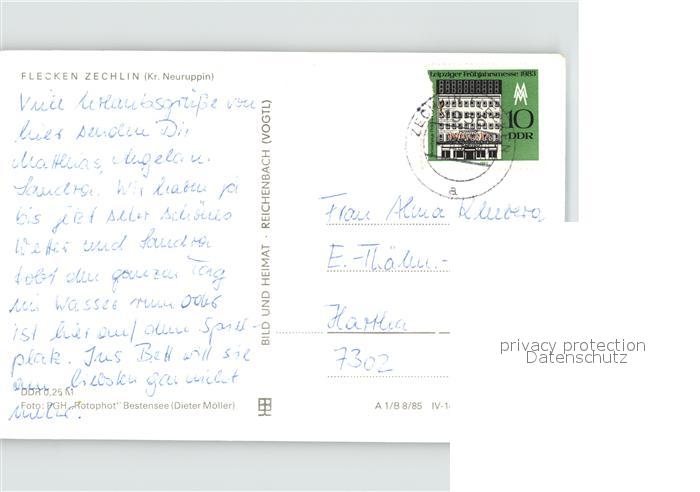 FLECKEN ZECHLIN (Kr. Neuruppin)
Viele Urlaubsgrüße von
hier senden Dir
Matthias, Angela u.
Sandra. Wir haben ja
bis jetzt sehr schönes
Wetter und Sandra
tobt den ganzen Tag
im Wasser rum oder
ist hier auf dem Spiel-
platz. Ins Bett will sie
am liebsten gar nicht
DDR 0,25 M
Foto: PGH „Rotophot" Bestensee (Dieter Möller)
BILD UND HEIMAT · REICHENBACH (VOGTL)
A 1/B 8/85 IV-1
Leipziger Frühjahrsmesse 1983
10
DDR
a
Frau Alma
E.-Thälm.-
Hartha
7302
privacy protection
Datenschutz